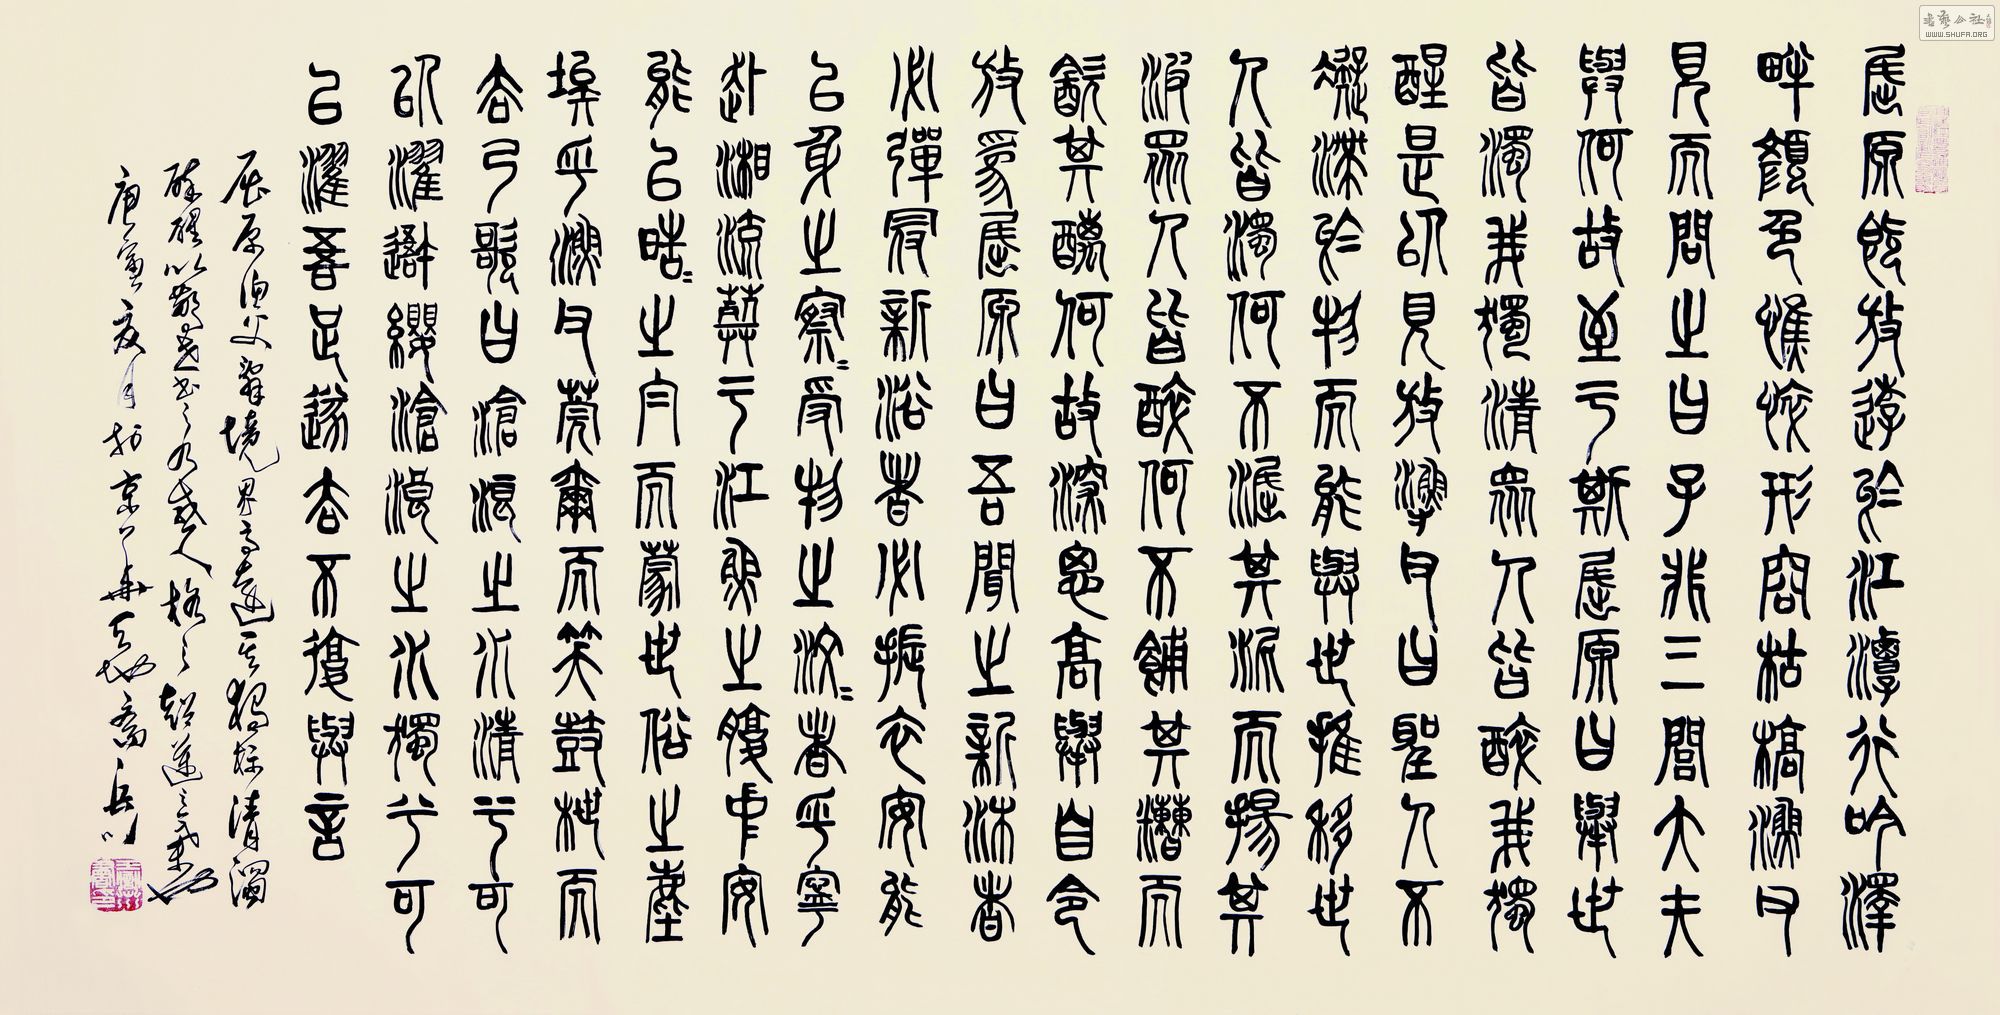 屈原既放遊於江潭行吟澤
畔顏色憔悴形容枯槁漁父
見而問之曰子非三閭大夫
與何故至于斯屈原曰舉世
皆濁我獨清眾人皆醉我獨
醒是以見放漁父曰聖人不
凝滯於物而能與世推移世
人皆濁何不淈其泥而揚其
波眾人皆醉何不餔其糟而
歠其醨何故深思高舉自令
放為屈原曰吾聞之新沐者
必彈冠新浴者必振衣安能
以身之察=受物之汶=者乎寧
赴湘流葬于江魚之腹中安
能以皓=之白而蒙世俗之塵
埃乎漁父莞爾而笑鼓枻而
去乃歌曰滄浪之水清兮可
以濯吾纓滄浪之水濁兮可
以濯吾足遂去不復與言
屈原漁父辭境界高遠其獨標清濁
醉醒以警世書之乃感人格之超邁哉
庚寅夏月於京華天地齋岳川
书艺公社
WWW.SHUFA.ORG